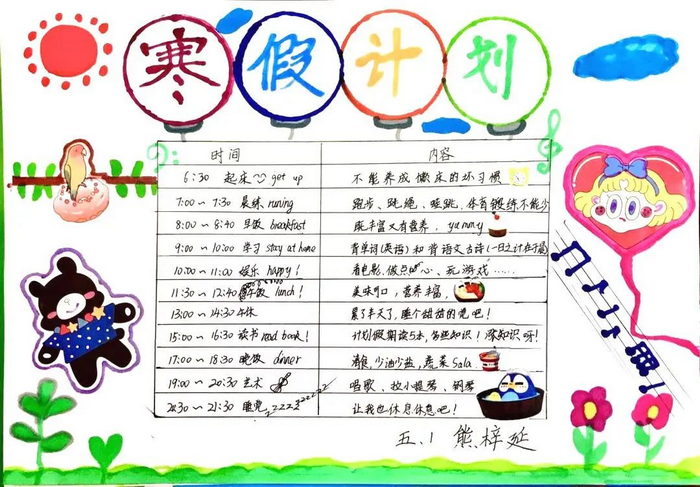 寒假计划
时间 内容
6:30 起床 get up 不能养成懒床的坏习惯
7:00~7:30 晨练 runing 跑步、跳绳、蛙跳，体育锻练不能少
8:00~8:40 早饭 breakfast 既丰富又有营养，yummy
9:00~10:00 学习 stay at home 背单词(英语)和背语文古诗(一日之计在于晨)
10:00~11:00 娱乐 happy! 看电影、做点心、玩游戏……
11:30~12:40 午饭 lunch! 美味可口，营养丰富，
13:00~14:30 午休 累了半天了，睡个甜甜的觉吧！
15:00~16:30 读书 read book! 计划假期读5本，知识！
17:00~18:30 晚饭 dinner 清食，少油少盐，蔬菜Sala
19:00~20:30 艺术 唱歌、拉小提琴、钢琴
20:30~21:30 睡觉 zzzzzzzzz 让我也休息休息吧！
五.1 熊梓延